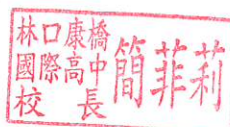 林口康橋
國際高中
校長
簡菲莉